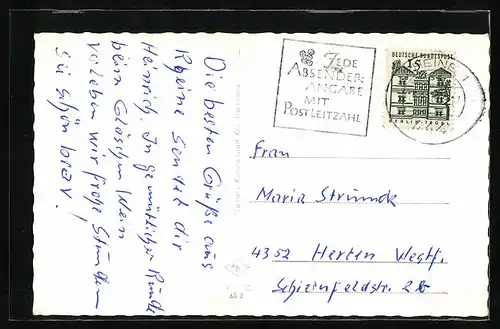 Die besten Grüße aus
Rheine sendet dir
Heinrich. In gemütlicher Runde
beim Gläschen Wein
verleben wir frohe Stunden
sei schön brav!
JEDE
ABSENDER-
ANGABE
MIT
POSTLEITZAHL
DEUTSCHE BUNDESPOST
15
RHEINE 1
Frau
Maria Strunck
4352 Herten Westf.
63-3